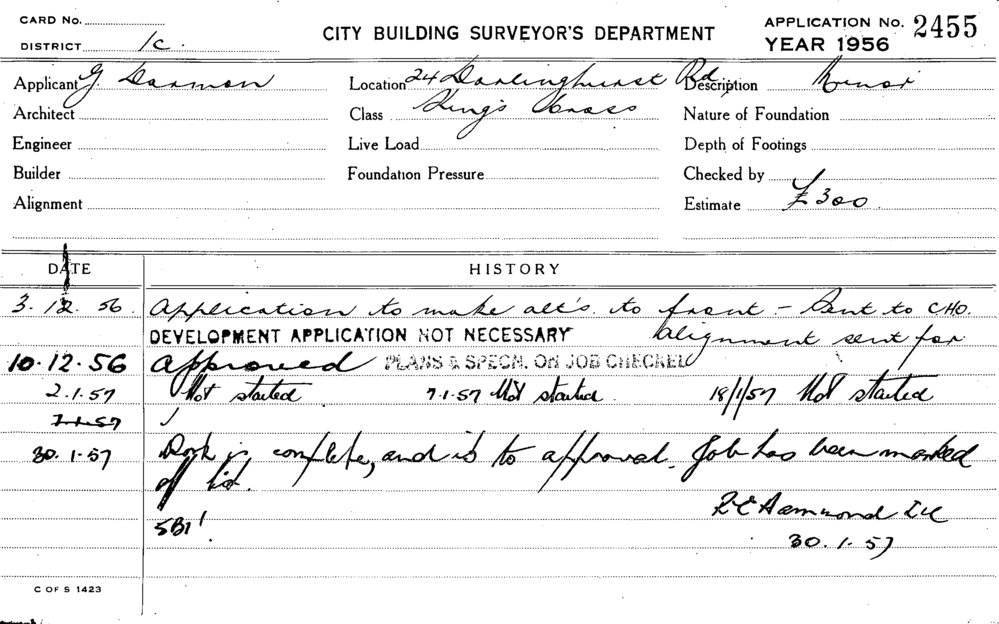 CARD No.
DISTRICT 1c.
CITY BUILDING SURVEYOR'S DEPARTMENT
APPLICATION No. 2455
YEAR 1956
Applicant G. Darmon
Location 24 Darlinghurst Rd
Description Minor
Architect
Class King's Cross
Nature of Foundation
Engineer
Live Load
Depth of Footings
Builder
Foundation Pressure
Checked by
Alignment
Estimate £300
DATE
HISTORY
3.12.56 Application to make alt's. to front - Sent to CHO.
DEVELOPMENT APPLICATION NOT NECESSARY alignment sent for
10.12.56 Approved PLANS & SPECN. ON JOB CHECKED
2.1.57 Not started 7.1.57 Not started. 18/1/57 Not started
7.1.57
30.1.57 Work is complete, and is to approval. Job has been marked
off list.
R E Hammond
SB1'
30.1.57
C OF S 1423